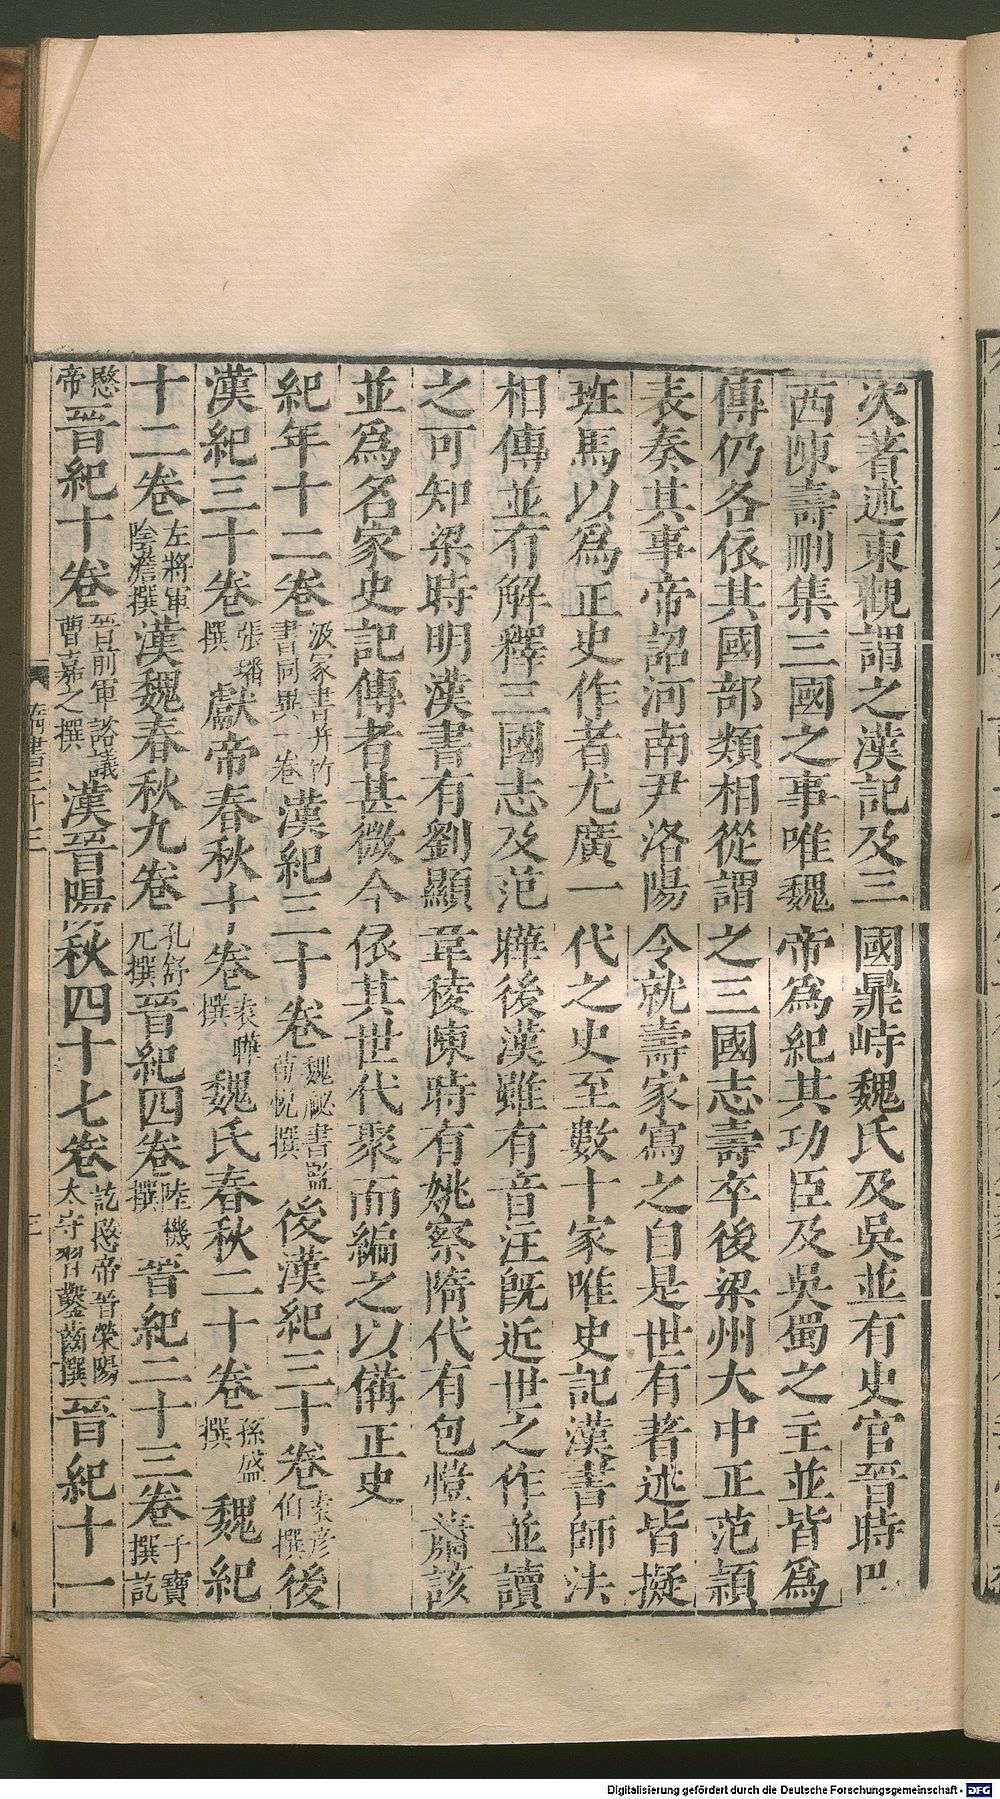 次著述東觀謂之漢記及三國鼎峙魏氏及吳並有史官晉時巴
西陳壽刪集三國之事唯魏帝爲紀其功臣及吳蜀之主並皆爲
傳仍各依其國部類相從謂之三國志壽卒後梁州大中正范頴
表奏其事帝詔河南尹洛陽令就壽家寫之自是世有著述皆擬
班馬以爲正史作者尤廣一代之史至數十家唯史記漢書師法
相傳並有解釋三國志及范曄後漢雖有音注旣近世之作並讀
之可知梁時明漢書有劉顯韋稜陳時有姚察隋代有包愷蕭該
並爲名家史記傳者甚微今依其世代聚而編之以備正史
紀年十二卷汲冢書并竹書同異一卷漢紀三十卷魏祕書監荀悅撰後漢紀三十卷袁彥伯撰後
漢紀三十卷張璠撰獻帝春秋十卷袁曄撰魏氏春秋二十卷孫盛撰魏紀
十二卷左將軍陰澹撰漢魏春秋九卷孔舒元撰晉紀四卷陸機撰晉紀二十三卷干寶撰訖
愍帝晉紀十卷晉前軍諮議曹嘉之撰漢晉陽秋四十七卷訖愍帝晉滎陽太守習鑿齒撰晉紀十一
隋書三十三
三
Digitalisierung gefördert durch die Deutsche Forschungsgemeinschaft - DFG